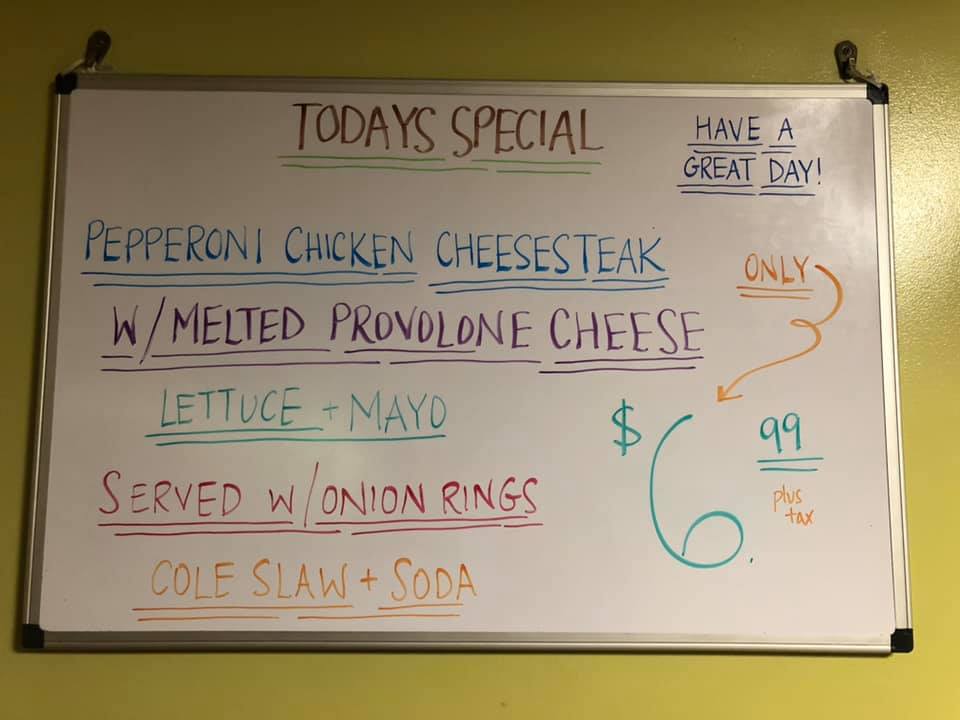 TODAYS SPECIAL
HAVE A
GREAT DAY!
PEPPERONI CHICKEN CHEESESTEAK
W/MELTED PROVOLONE CHEESE
LETTUCE + MAYO
SERVED W/ONION RINGS
COLE SLAW + SODA
ONLY
$6.99
plus
tax